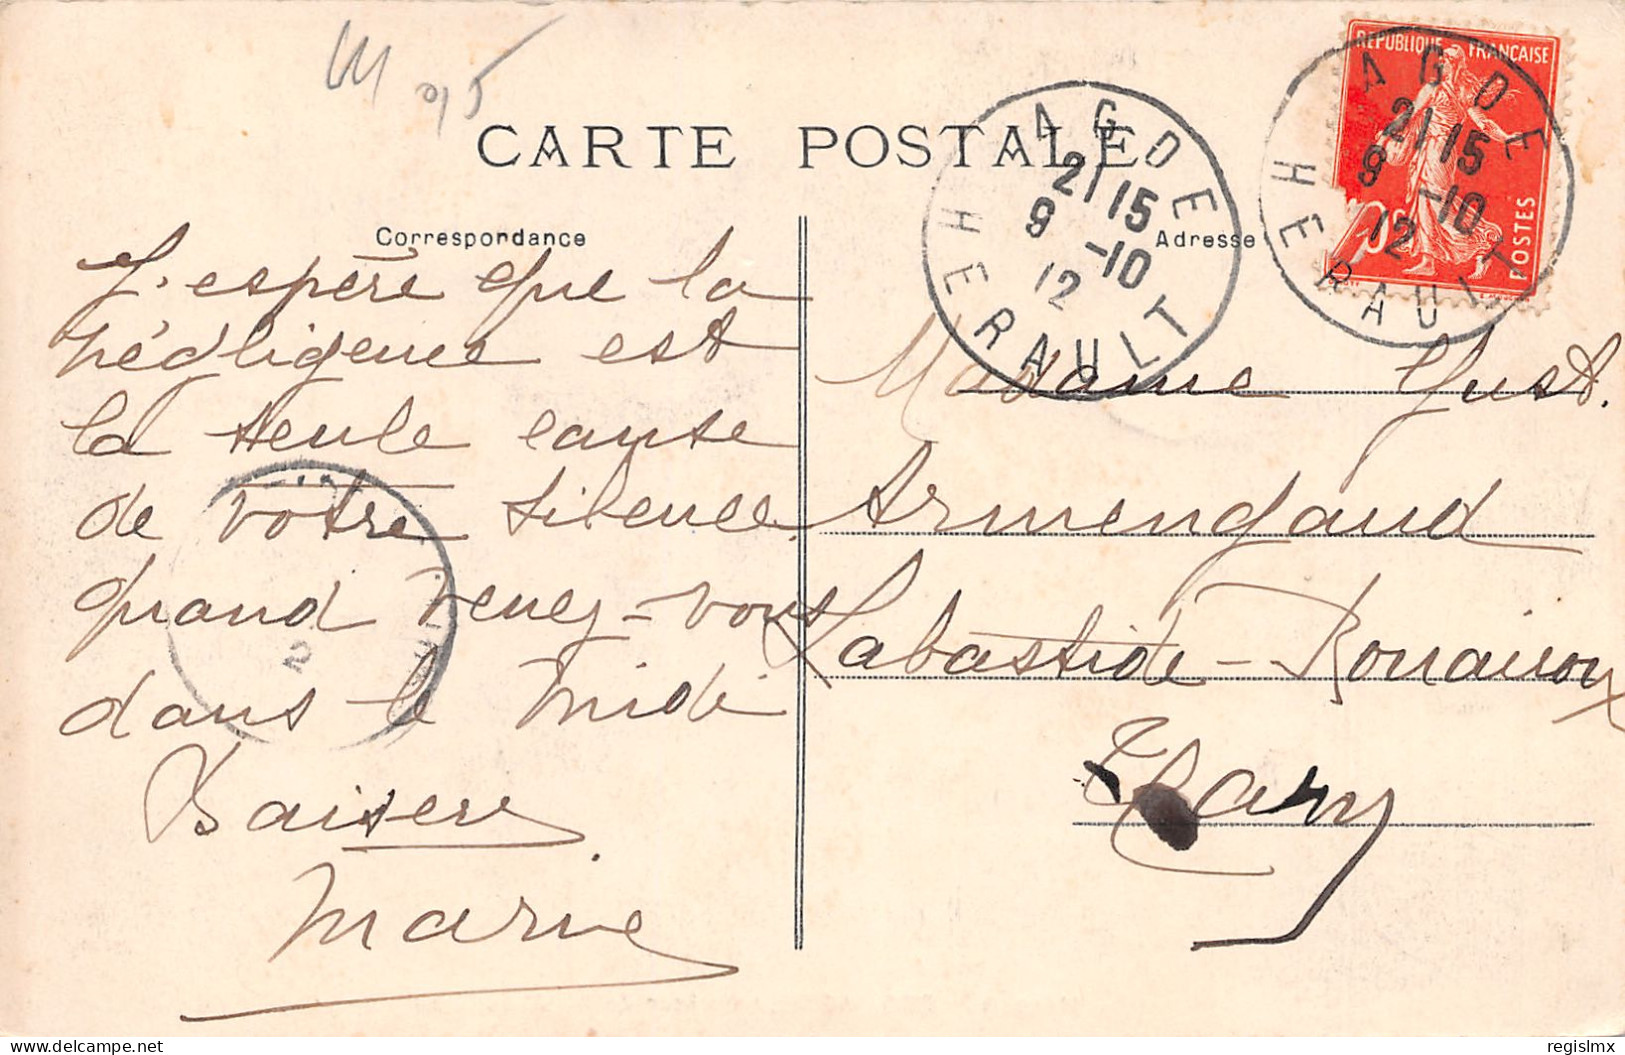 CARTE POSTALE
Correspondance
J'espère que la
négligence est
la seule cause
de votre silence.
quand venez-vous
dans le midi
Baisers
Marie
Adresse
Madame Gust.
Armengaud
Labastide-Rouairoux
Tarn
REPUBLIQUE FRANÇAISE
POSTES
10c
AGDE
21 15
9 -10
12
HERAULT
AGDE
21 15
9 -10
12
HERAULT
delcampe.net
regislmx